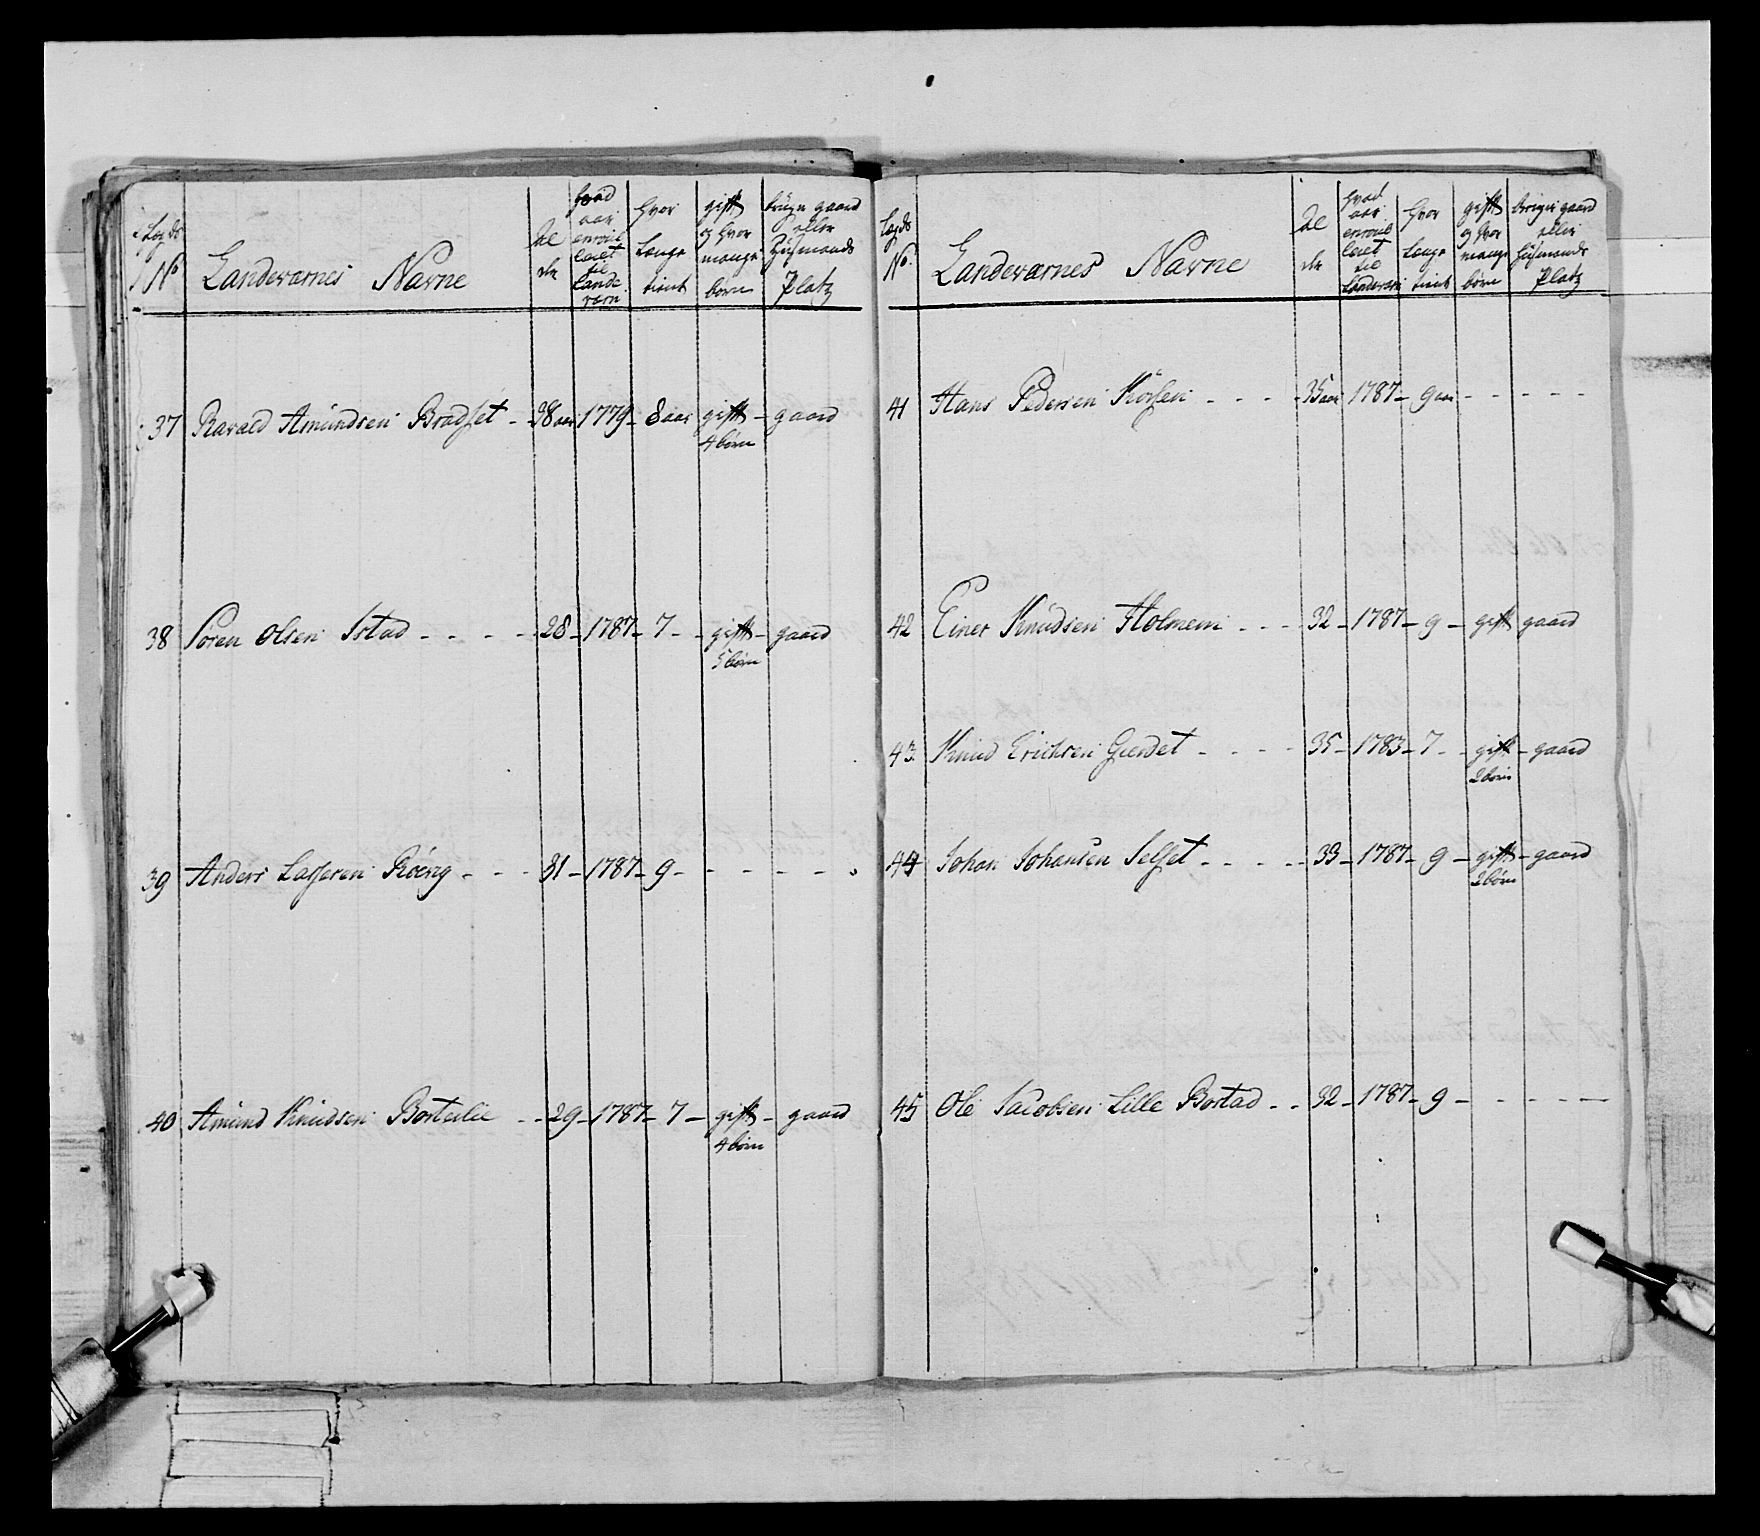 Lægds No | Landeværnes Navne | Alde | hvad aar enroulleret til Landeværn | hvor Længe tient | gift og hvor mange børn | bruger gaard eller Huusmands Platz
37 Ravald Amundsen Bradset - 38 aar 1779 - 8 aar gift - gaard
4 børn
38 Søren Olsen Istad - - - - 28 - 1787 - 7 - - gift - gaard
5 børn
39 Anders Lassesen Røeng - - - 31 - 1787 - 9 - - - - - -
40 Amund Knudsen Bortelie - - 29 - 1787 - 7 - gift - gaard
4 børn
Lægds No. | Landeværnes Navne | Alde | hvad aar enroulleret til Landeværn | hvor Længe tient | gift og hvor mange børn | bruger gaard eller Huusmands Platz
41 Hans Pedersen Kørsen - - - - 35 aar 1787 - 9 aar - - - - -
42 Einer Knudsen Holmem - - - 32 - 1787 - 9 - gift gaard
43 Knud Erichsen Gierdet - - - - 35 - 1783 - 7 - - gift - gaard
2 børn
44 Johan Johansen Selset - - - - - 33 - 1787 - 9 - gift - gaard
2 børn
45 Ole Jacobsen Lille Bostad - - 32 - 1787 - 9 - - - - -